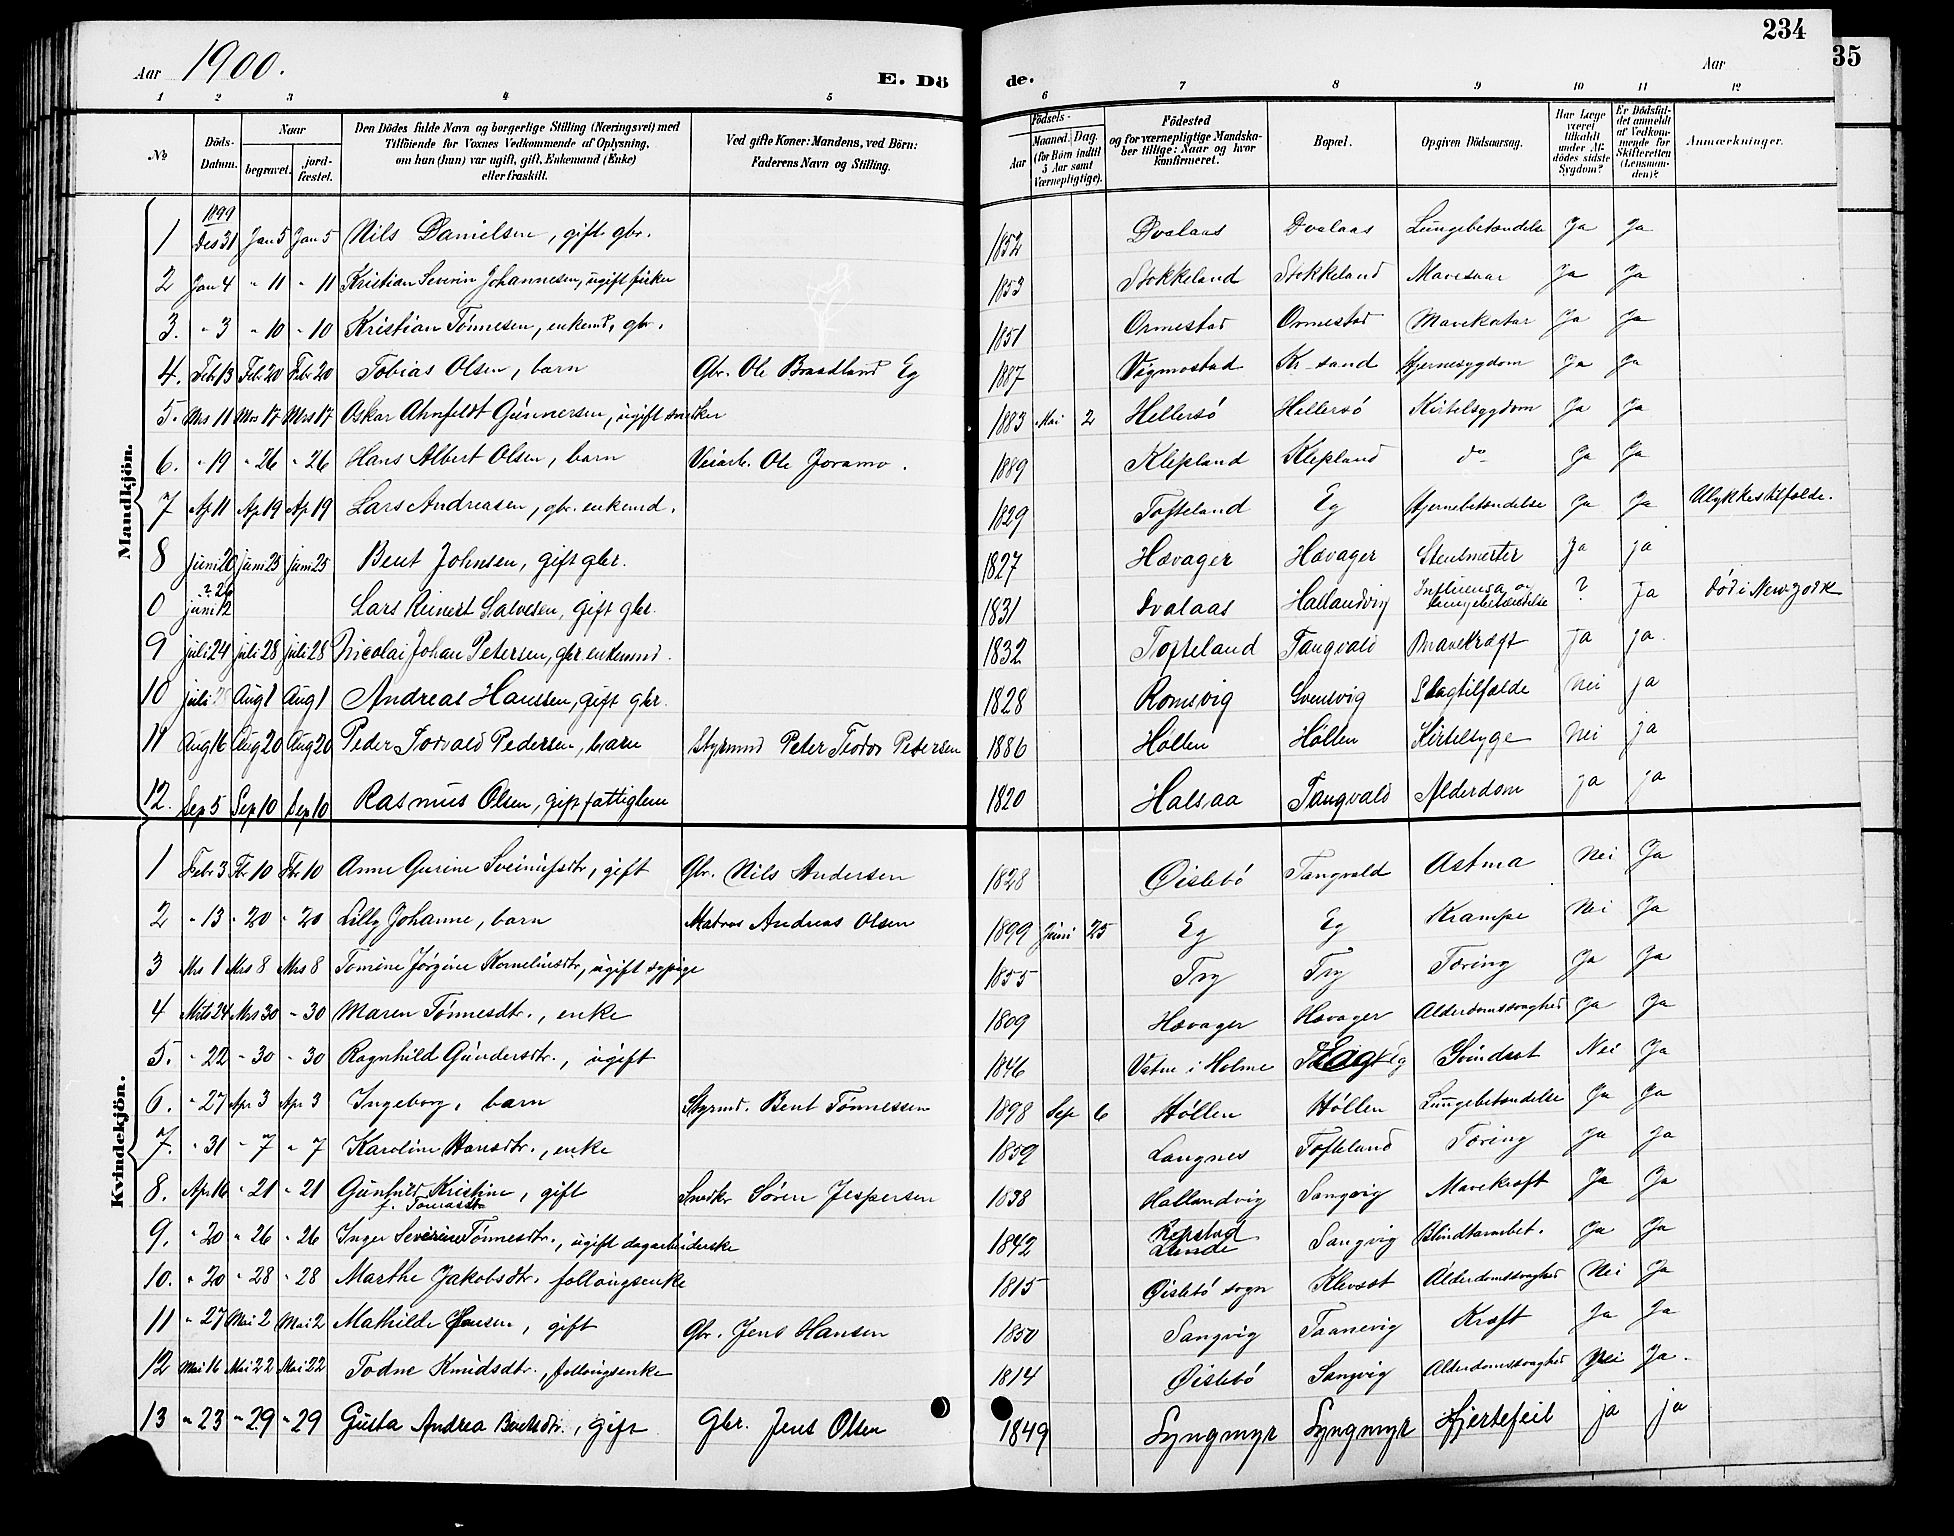 234
35
Aar 1900.
E. Dö
de.
Aar
1 2 3 4 5 6 7 8 9 10 11 12
No
Döds-Datum.
Naar
begravet.
jord-fæstet.
Den Dödes fulde Navn og borgerlige Stilling (Næringsvei) med Tilföiende for Voxnes Vedkommende af Oplysning, om han (hun) var ugift, gift, Enkemand (Enke) eller fraskilt.
Ved gifte Koner: Mandens, ved Börn: Faderens Navn og Stilling.
Födsels-
Aar
Maaned.
Dag.
(for Börn indtil 5 Aar samt Værnepligtige).
Födested og for værnepligtige Mandskaber tillige: Naar og hvor konfirmeret.
Bopæl.
Opgiven Dödsaarsag.
Har Læge været tilkaldt under Afdödes sidste Sygdom?
Er Dödsfaldet anmeldt af Vedkommende for Skifteretten (Lensmanden)?
Anmærkninger.
Mandkjön.
1 1899 Des 31 Jan 5 Jan 5 Nils Danielsen, gift gbr. 1852 Dvalaas Dvalaas Lungebetændelse Ja Ja
2 Jan 4 " 11 " 11 Kristian Severin Johannesen, ugift fisker 1853 Stokkeland Stokkeland Mavesaar Ja Ja
3. " 3 " 10 " 10 Kristian Tönnesen, enkemd, gbr. 1851 Ormestad Ormestad Mavekatar Ja Ja
4. Febr 13 Febr 20 Febr 20 Tobias Olsen, barn Gbr. Ole Braadland Eg 1887 Vigmostad Kr-sand Hjernesygdom Ja Ja
5. Mrs 11 Mrs 17 Mrs 17 Oskar Ahnfeldt Gunnersen, ugift snedker 1883 Mai 2 Hellersö Hellersö Kirtelsygdom Ja Ja
6. " 19 " 26 " 26 Hans Albert Olsen, barn Veiarb. Ole Joramo. 1889 Klepland Klepland do Ja Ja
7 Ap 11 Ap 19 Ap 19 Lars Andreasen, gbr. enkemd. 1829 Tofteland Eg Hjernebetændelse Ja Ja Ulykkestilfælde.
8 juni 20 juni 25 juni 25 Bent Johnsen, gift gbr. 1827 Hævager Hævager Stensmerter ja ja
0 ? 26 juni 12 Lars Reinert Salvesen, gift gbr. 1831 Dvalaas Hallandvig Influensa og lungebetændelse ? ja död i New-york
9 juli 24 juli 28 juli 28 Nicolai Johan Petersen, gbr. enkemnd. 1832 Tofteland Tangvald Mavekræft ja ja.
10 juli Aug 1 Aug 1 Andreas Hansen, gift gbr. 1828 Romsvig Svensvig Slagtilfælde Nei ja
11 Aug 16 Aug 20 Aug 20 Peder Torvald Pedersen, barn Styrmnd Peter Teodor Petersen 1886 Höllen Höllen Kirtelsyge Nei ja
12. Sep 5 Sep 10 Sep 10 Rasmus Olsen, gift fattiglem 1820 Halsaa Tangvald Alderdom ja ja
Kvindekjön.
1 Febr 3 Fbr 10 Fbr 10 Anne Gurine Sveinufsdtr, gift Gbr. Nils Andersen 1828 Öislebö Tangvald Astma Nei Ja
2 " 13 " 20 " 20 Lilly Johanne, barn Matros Andreas Olsen 1899 Juni 25 Eg Eg Krampe Nei Ja
3 Mrs 1 Mrs 8 Mrs 8 Tomine Jörgine Korneliusdtr, ugift sypige 1855 Try Try Tæring Ja Ja
4 Mrts 24 Mrs 30 " 30 Maren Tönnesdtr., enke 1809 Hævager Hævager Alderdomssvaghed Ja Ja
5. " 22 " 30 " 30 Ragnhild Gundersdtr., ugift 1846 Vatne i Holme Svindsot Nei Ja
6. " 27 Apr 3 Apr 3 Ingeborg, barn Styrmd. Bent Tönnessen 1898 Sep 6 Höllen Höllen Lungebetændelse Ja Ja
7. " 31 " 7 " 7 Karoline Hansdtr., enke 1859 Langnes Tofteland Tæring Ja Ja
8. Apr 16 " 21 " 21 Gunhild Kristine, gift Snedkr Sören Jespersen 1838 Hallandvig Sangvig Mavekræft Ja Ja
f. Tomasdtr
9. " 20 " 26 " 26 Inger Severine Tönnesdtr., ugift dagarbeiderske 1842 Repstad Lunde Sangvig Blindtarmbet. Ja Ja
10. " 20 " 28 " 28 Marthe Jakobsdtr. follougsenke 1815 Öislebö sogn Klevset Alderdomssvaghed Nei Ja
11 " 27 Mai 2 Mai 2 Mathilde Hansen, gift Gbr. Jens Hansen 1850 Sangvig Taanevig Kræft Ja Ja
12 Mai 16 Mai 22 Mai 22 Todne Knudsdtr., follougsenke 1814 Öislebö Sangvig Alderdomssvaghed Nei Ja.
13 " 23 " 29 " 29 Gusta Andrea Bentsdtr., gift Gbr. Jens Olsen 1849 Lyngmyr Lyngmyr Hjertefeil ja ja